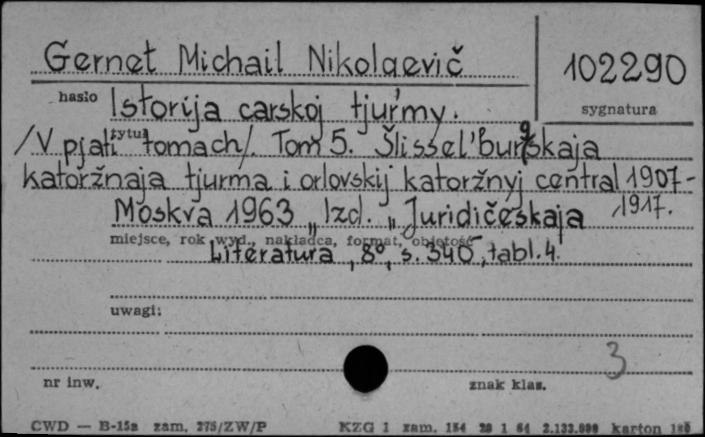 Gernet Michail Nikolaevič
102290
hasło Istorija carskoj tjur'my.
sygnatura
/V pjati tytuł tomach/. Tom 5. Šlissel'burgskaja
katoržnaja tjurma i orlovskij katoržnyj central 1907-
Moskva 1963 „Izd. „Juridičeskaja 1917.
miejsce, rok wyd., nakładca, format, objętość
Literatura, 8º, s. 340, tabl. 4.
uwagi:
3
nr inw. znak klas.
CWD — B-15a zam. 275/ZW/P KZG 1 zam. 154 1 64 2.133.000 karton